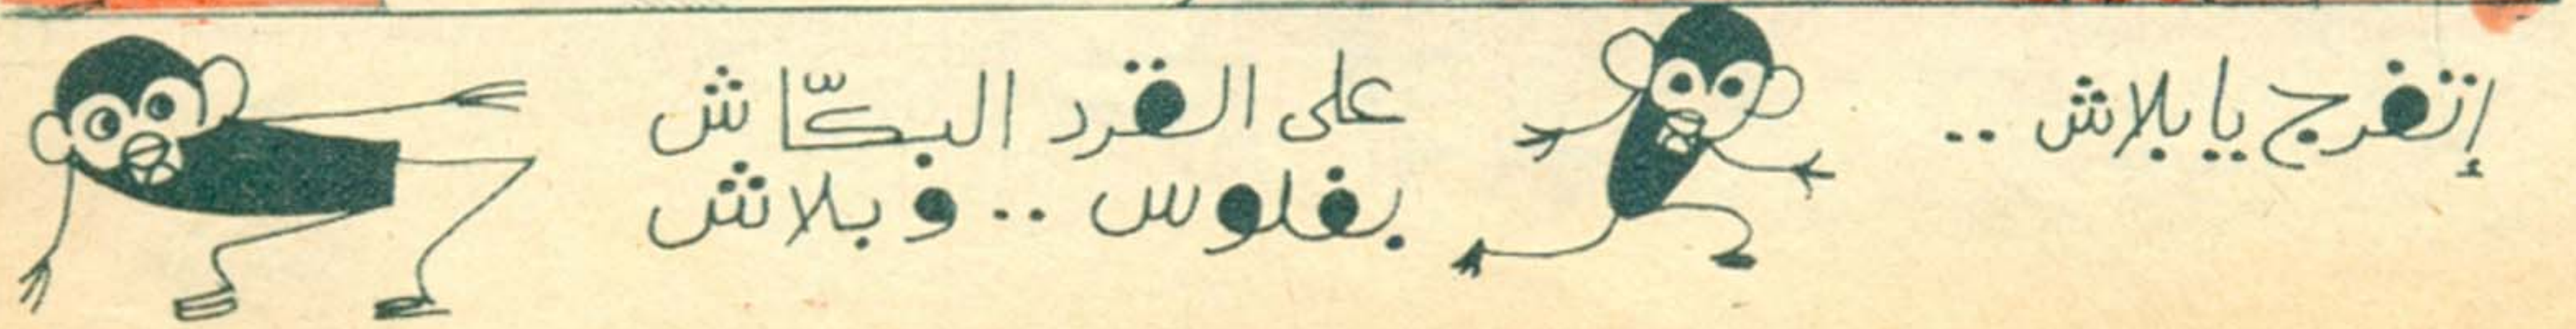 إتفرج يا بلاش ..
على القرد البكّاش
بفلوس .. وبلاش